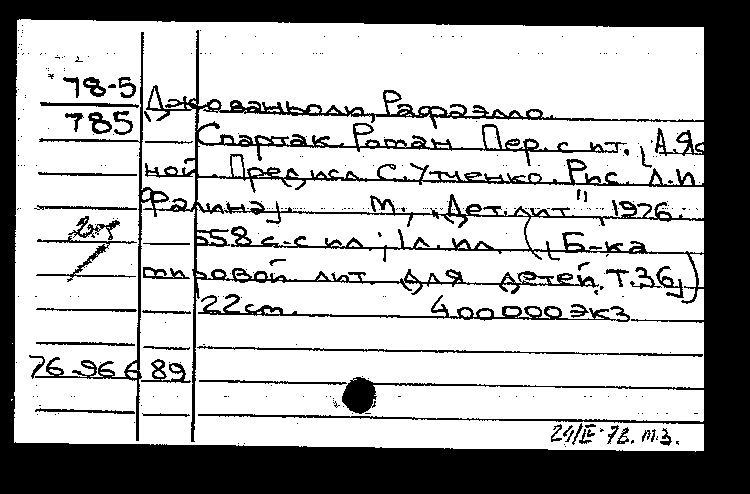 78-5
785
Джованьоли, Рафаэлло.
Спартак. Роман. Пер. с ит. [А. Яс
ной. Предисл. С. Утченко. Рис. Л. П.
Фалина].  М., „Дет. лит", 1976.
558 с. с ил.; 1 л. ил. ([Б-ка
мировой лит. для детей, Т. 36])
22 cm.  400 000 экз
76.96 6 89
24/II-78. т.з.